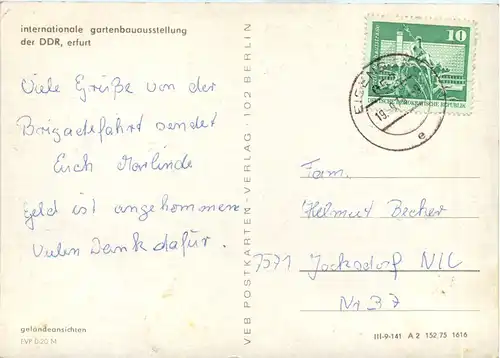 internationale gartenbauausstellung
der DDR, erfurt
Viele Grüße von der
Brigadefahrt sendet
Euch Marlinde
Geld ist angekommen
Vielen Dank dafür.
geländeansichten
EVP 0,20 M
VEB POSTKARTEN-VERLAG · 102 BERLIN
10
DEUTSCHE DEMOKRATISCHE REPUBLIK
19.
e
Fam.
Helmut Becher
7571 Jocksdorf NL
Nr 37
III-9-141 A 2 152,75 1616